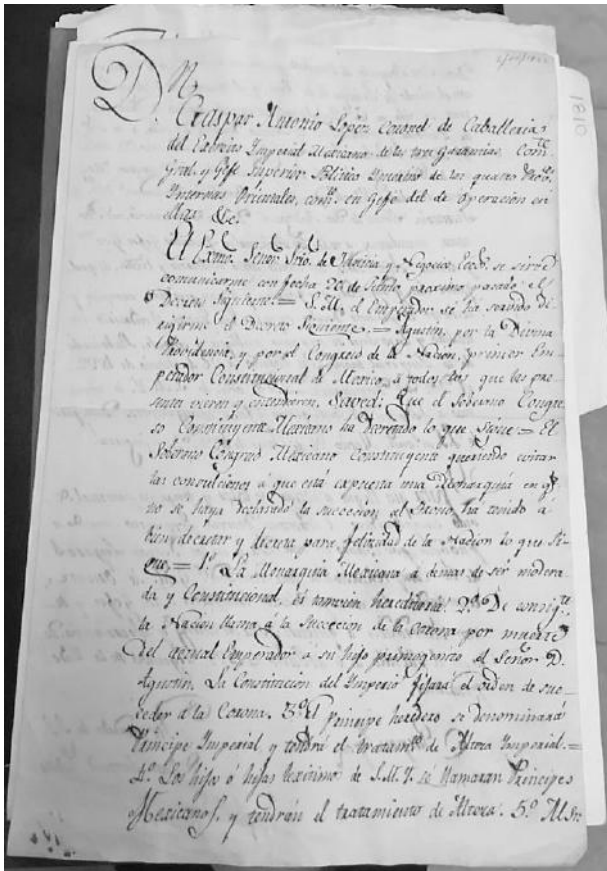 D. N.
Gaspar Antonio Lopez Coronel de Caballeria
del Exército Imperial Mexicano de las tres Garantias, Com.te
Gral. y Gefe Superior Político Interino de las quatro Prov.s
Internas Orientales, com.te en Gefe del de Operacion en
ellas &c.
El Exmo. Señor Srio. de Justicia y Negocios Ecc.s se sirve
comunicarme con fecha 22 de Junio proximo pasado el
Decreto siguiente = S. M. el Emperador se ha servido di
rigirme el Decreto siguiente. = Agustin, por la Divina
Providencia, y por el Congreso de la Nacion, primer Em-
perador Constitucional de Mexico, á todos los que las pre
sentes vieren y entendieren, Saved: Que el Soberano Congre
so Constituyente Mexicano ha Decretado lo que sigue = El
Soberano Congreso Mexicano Constituyente queriendo evitar
las convulciones á que está expuesta una Monarquia en q.e
no se haya Declarado la succecion al Trono, ha tenido á
bien decretar y decreta para felicidad de la Nacion lo que si-
gue. = 1.º La Monarquia Mexicana á demas de ser modera-
da y Constitucional, es tambien hereditaria. 2.º De consig.te
la Nacion llama á la succecion de la Corona por muerte
del actual Emperador á su hijo primogenito el Señor D.
Agustin. La Constitucion del Imperio fijara el orden de suc-
ceder á la Corona. 3.º El principe heredero se denominará
Principe Imperial, y tendrá el tratam.to de Alteza Imperial. =
4.º Los hijos é hijas lexitimos de S. M. Y. se llamaran Principes
Mexicanos, y tendrán el tratamiento de Alteza. 5.º Al Sr.
0131